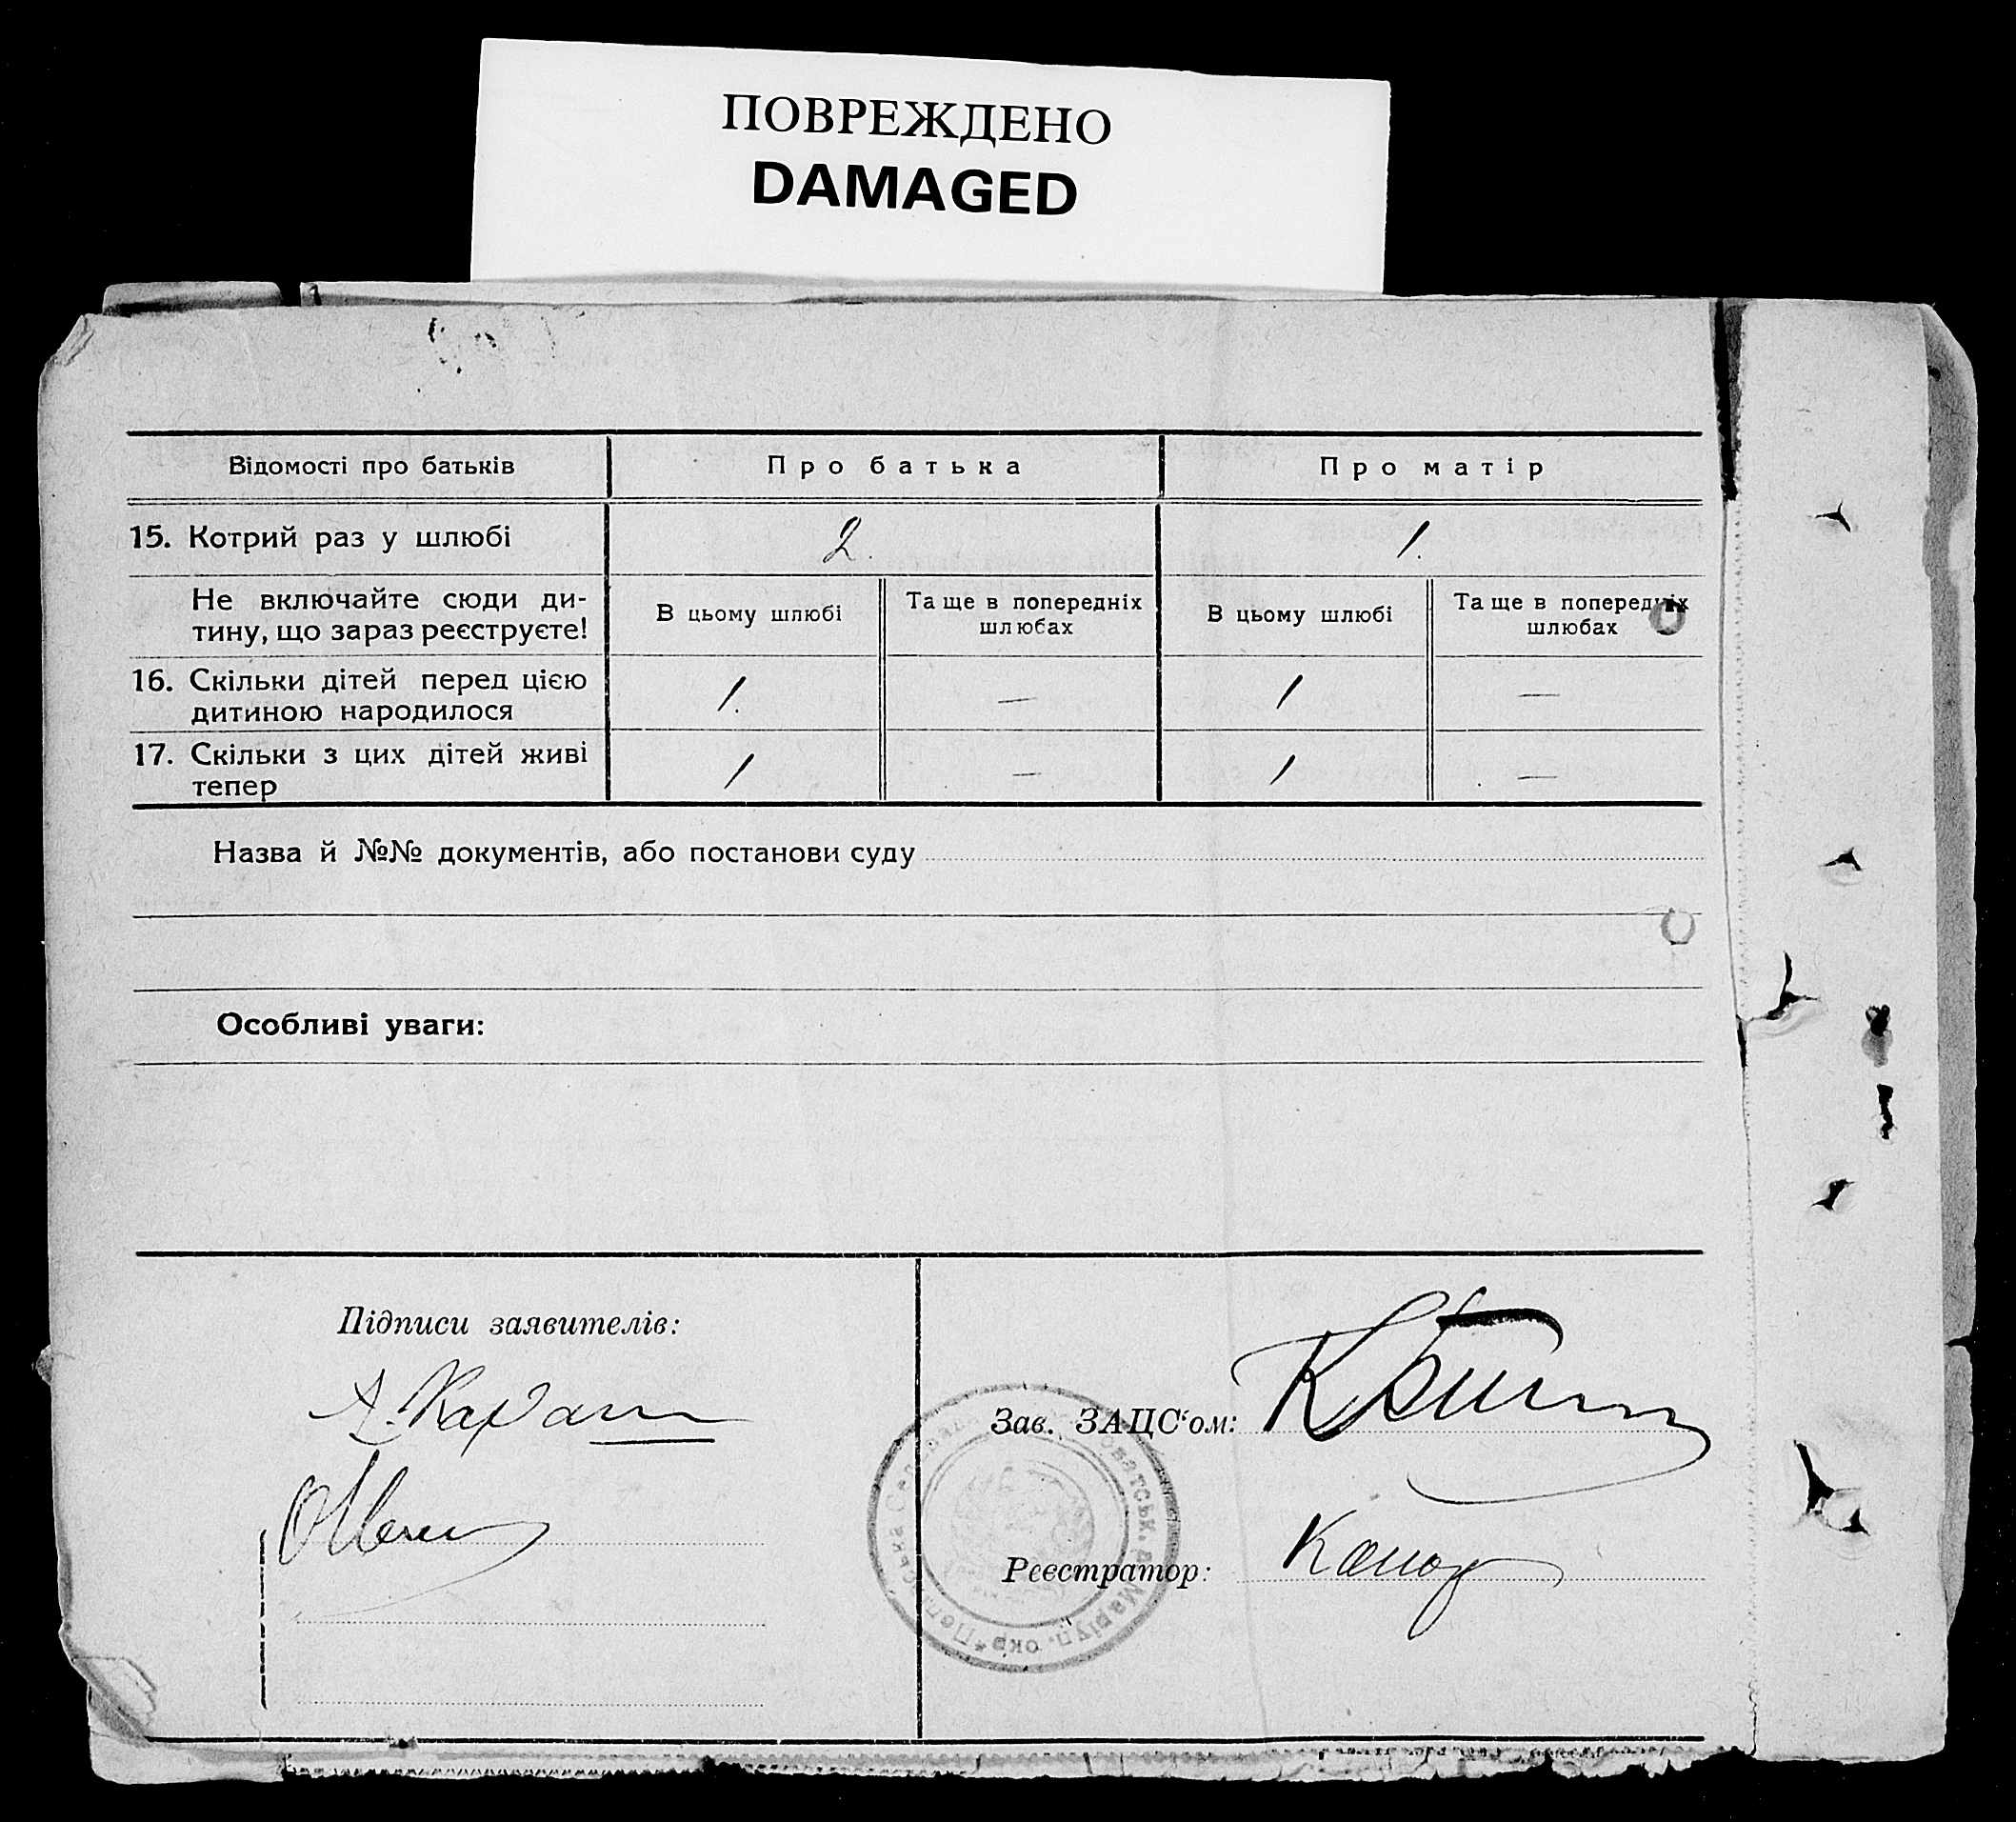 ПОВРЕЖДЕНО
DAMAGED
Відомості про батьків
Про батька
Про матір
15. Котрий раз у шлюбі
2.
1.
Не включайте сюди ди-
тину, що зараз реєструєте!
В цьому шлюбі
Та ще в попередніх
шлюбах
В цьому шлюбі
Та ще в попередніх
шлюбах
16. Скільки дітей перед цією
дитиною народилося
1.
—
1
—
17. Скільки з цих дітей живі
тепер
1
—
1
—
Назва й №№ документів, або постанови суду
Особливі уваги:
Підписи заявителів:
Зав. ЗАЦС‘ом:
Реєстратор:
Маріуп. окр